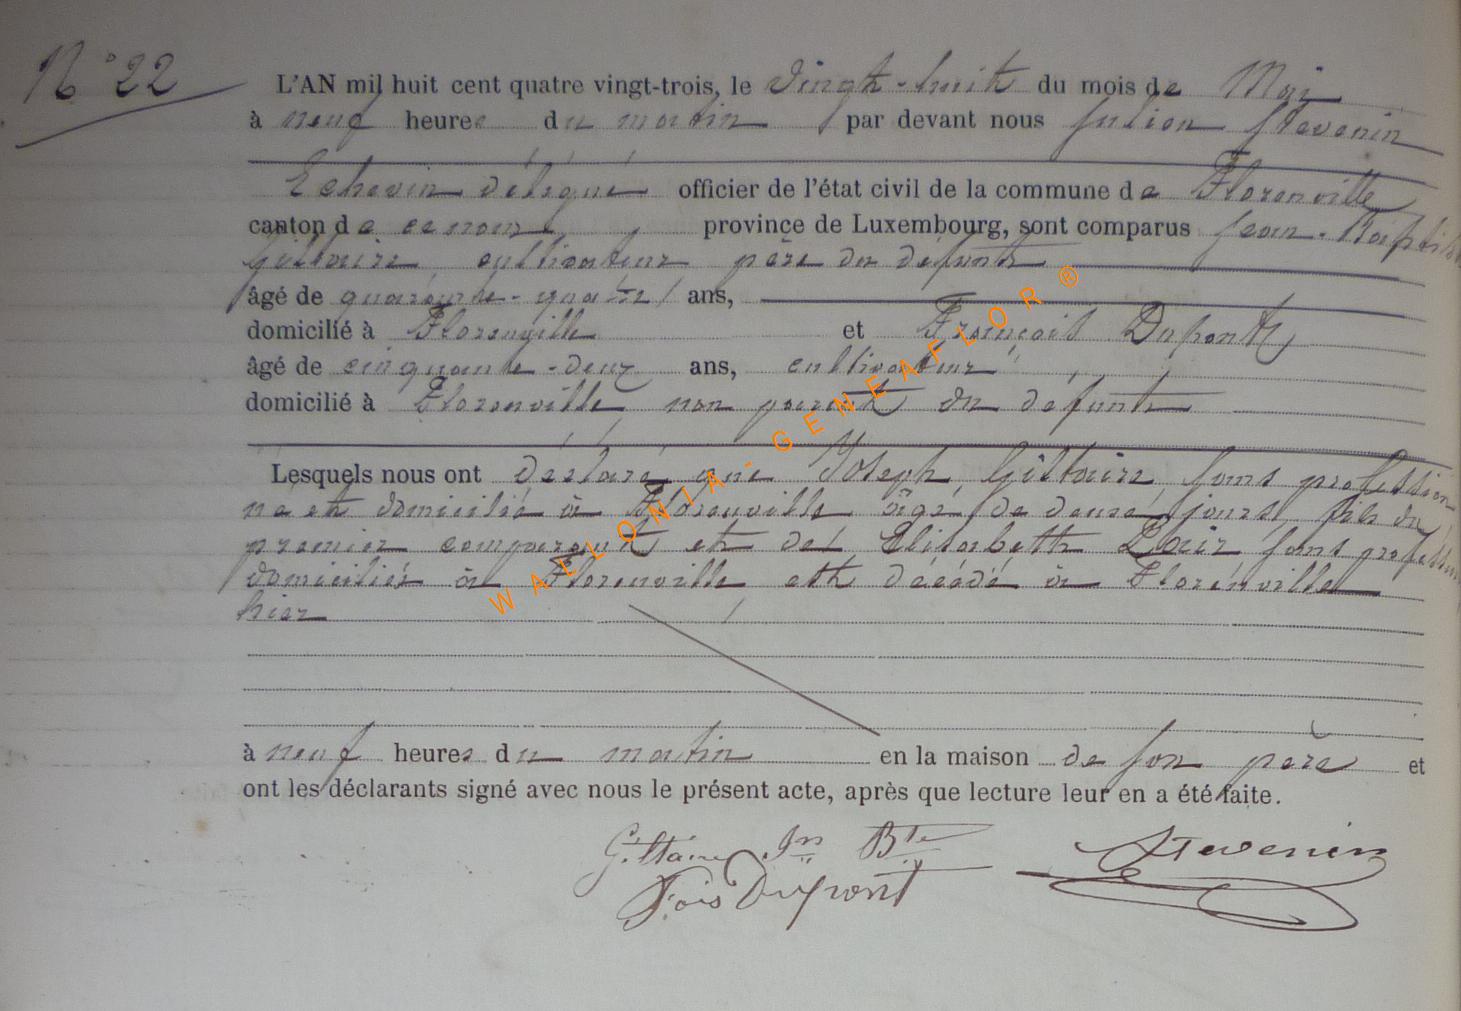 N° 22
L'AN mil huit cent quatre vingt-trois, le Vingt-huit du mois de Mai
à neuf heures du matin par devant nous Julien Stevenin
Echevin délégué officier de l'état civil de la commune de Florenville
canton de ce nom province de Luxembourg, sont comparus Jean-Baptiste
Giltaire cultivateur père du défunt
âgé de quarante-quatre ans,
domicilié à Florenville et François Dupont
âgé de cinquante-deux ans, cultivateur
domicilié à Florenville non parent du défunt
Lesquels nous ont déclaré que Joseph Giltaire sans profession
né et domicilié à Florenville âgé de jours, fils du
premier comparant et de Elisabeth sans profession
domiciliés à Florenville est décédé à Florenville
hier
à neuf heures du matin en la maison de son père et
ont les déclarants signé avec nous le présent acte, après que lecture leur en a été faite.
Giltaire Jn Bte Stevenin
Fois Dupont
WALLONIA - GENEAFLOR ®